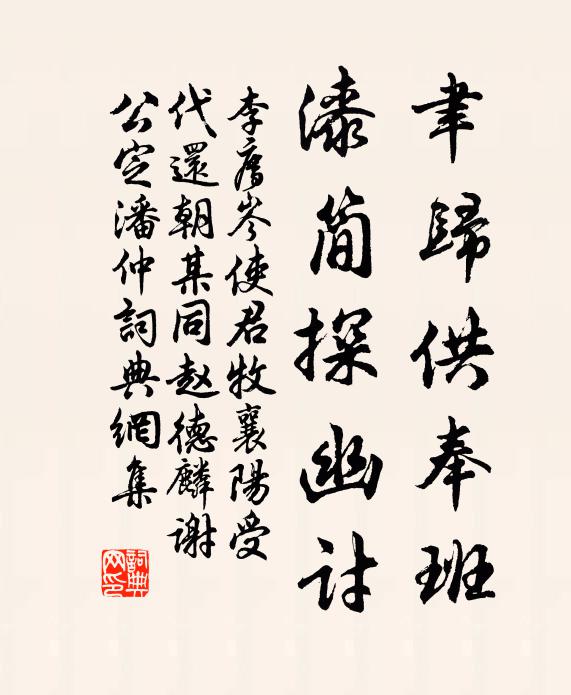 聿歸供奉班
漆簡探幽討
李廌岑使君牧襄陽受
代還朝某同赵德麟谢
公定潘仲詞典網集
詞典网印